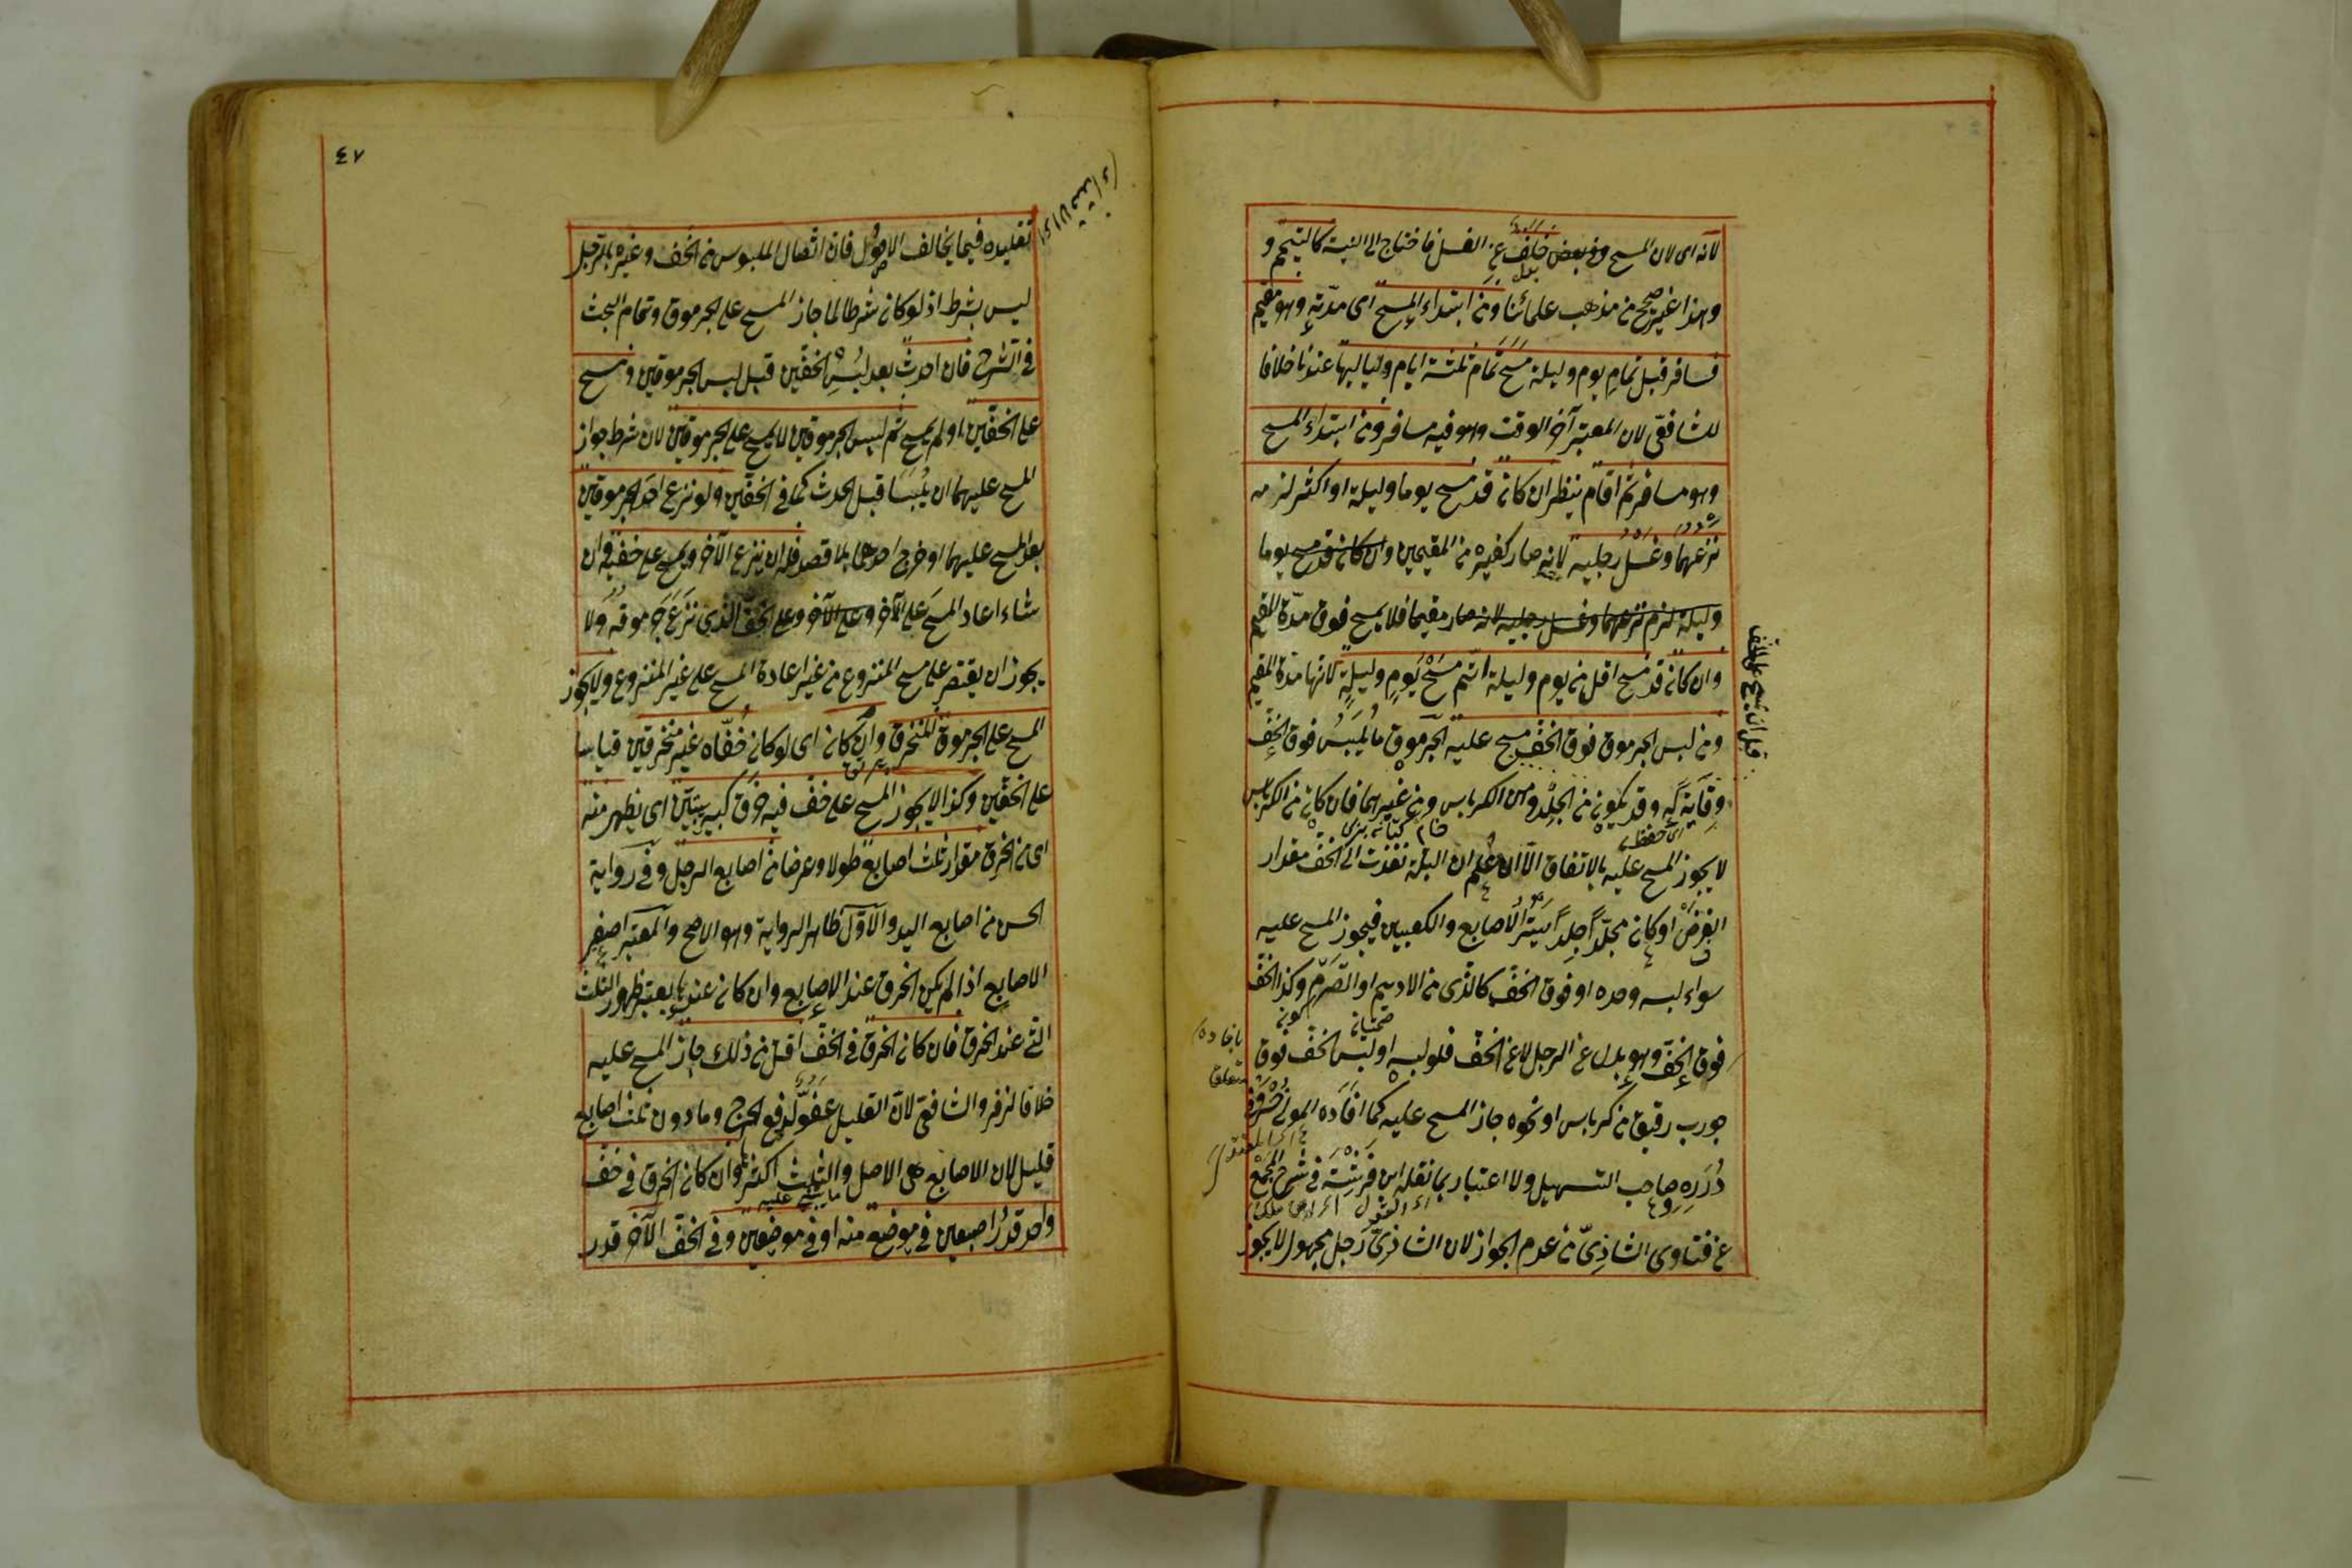 لانه اى لان المسح وفى بعض خلف عن الغسل فاحتاج الى النية كالتيمم و
بدل
وهذا غير صحيح من مذهب علمائنا ومن ابتداء المسح اى مدّته وهو مقيم
فسافر قبل تمام يوم وليلة مسح تمام ثلثة ايام ولياليها عندنا خلافا
للشافعىّ لان المعتبر آخر الوقت وهو فيه مسافر ومن ابتداء المسح
وهو مسافر ثم اقام ينظر ان كان قد مسح يوما وليلة او اكثر لزمه
نزعهما وغسل رجليه لانه صار كغيره من المقيمين وان كان قد مسح يوما
وليلة لزم نزعهما وغسل رجليه لانه صار مقيما فلا يمسح فوق مدّة المقيم
وان كان قد مسح اقل من يوم وليلة اتم مسح يوم وليلة لانها مدّة المقيم
قبل ان يمسح على الخف
ومن لبس الجرموق فوق الخف مسح عليه الجرموق ما يلبس فوق الخف
وقاية له وقد يكون من الجلد ومن الكرباس ومن غيرهما فان كان من الكرباس
اى حفظ
لا يجوز المسح عليه بالاتفاق الّا ان علم ان البلة نفذت الى الخف مقدار
الفرض او كان مجلّدا جلدا يستر الاصابع والكعبين فيجوز المسح عليه
سواء لبسه وحده او فوق الخف كالذى من الاديم او الصّرم وكذا الخف
فوق الخف وهو بدل عن الرجل لا عن الخف فلو لبسه او لبس الخف فوق
جورب رقيق من كرباس او نحوه جاز المسح عليه كما افاده المولى خسرو فى
بافاده
متعلق
درره وصاحب التسهيل ولا اعتبار بما نقله ابن فرشته فى شرح المجمع
عن فتاوى الشاذىّ من عدم الجواز لان الشاذىّ رجل مجهول لا يجوز
٤٧
تقليده فيما يخالف الاصول فان اتصال الملبوس من الخف وغيره بالرجل
ليس بشرط اذ لو كان شرطا لما جاز المسح على الجرموق وتمام البحث
فى الشرح فان احدث بعد لبس الخفين قبل لبس الجرموقين ومسح
على الخفين او لم يمسح ثم لبس الجرموقين لا يمسح على الجرموقين لان شرط جواز
المسح عليهما ان يلبسا قبل الحدث كما فى الخفين ولو نزع احد الجرموقين
بعد المسح عليهما او خرج احدهما بلا قصد فله ان ينزع الآخر ويمسح على خفيه وان
شاء اعاد المسح على الآخر وعلى الآخر وعلى الخف الذى نزع جرموقه ولا
يجوز ان يقتصر على مسح المنزوع من غير اعادة المسح على غير المنزوع ولا يجوز
المسح على الجرموق المنخرق وان كان اى لو كان خفّاه غير منخرقين قياسا
على الخفين وكذا لا يجوز المسح على خف فيه خرق كبير يتبيّن اى يظهر منه
اى من الخرق مقدار ثلث اصابع طولا وعرضا من اصابع الرجل وفى رواية
الحسن من اصابع اليد والاول ظاهر الرواية وهو الاصح والمعتبر اصغر
الاصابع اذا لم يكن الخرق عند الاصابع وان كان عندها يعتبر ظهور الثلث
التى عند الخرق فان كان الخرق فى الخف اقل من ذلك جاز المسح عليه
خلافا لزفر والشافعىّ لانّ القليل عفو لدفع الحرج وما دون ثلث اصابع
قليل لان الاصابع هى الاصل والثلث اكثرها وان كان الخرق فى خف
واحد قدر اصبعين فى موضع منه او فى موضعين وفى الخف الآخر قدر